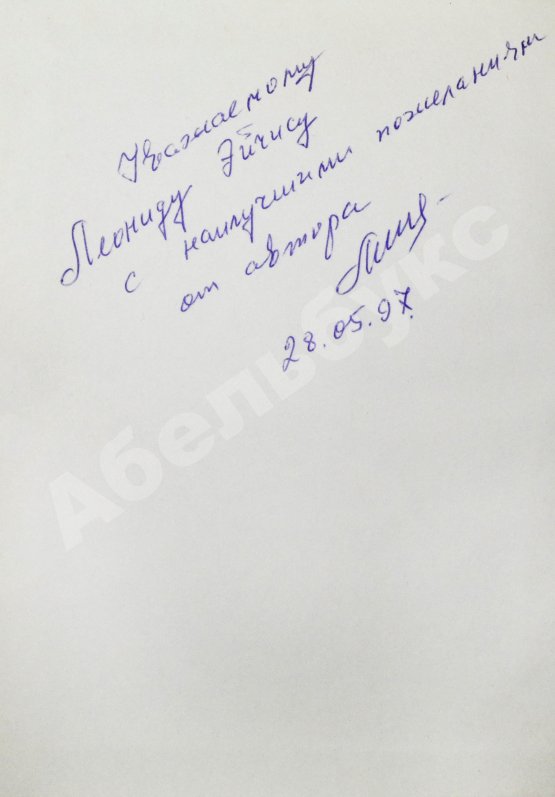 Уважаемому
Леониду Эйчису
с наилучшими пожеланиями
от автора
28.05.97.
Абельбукс